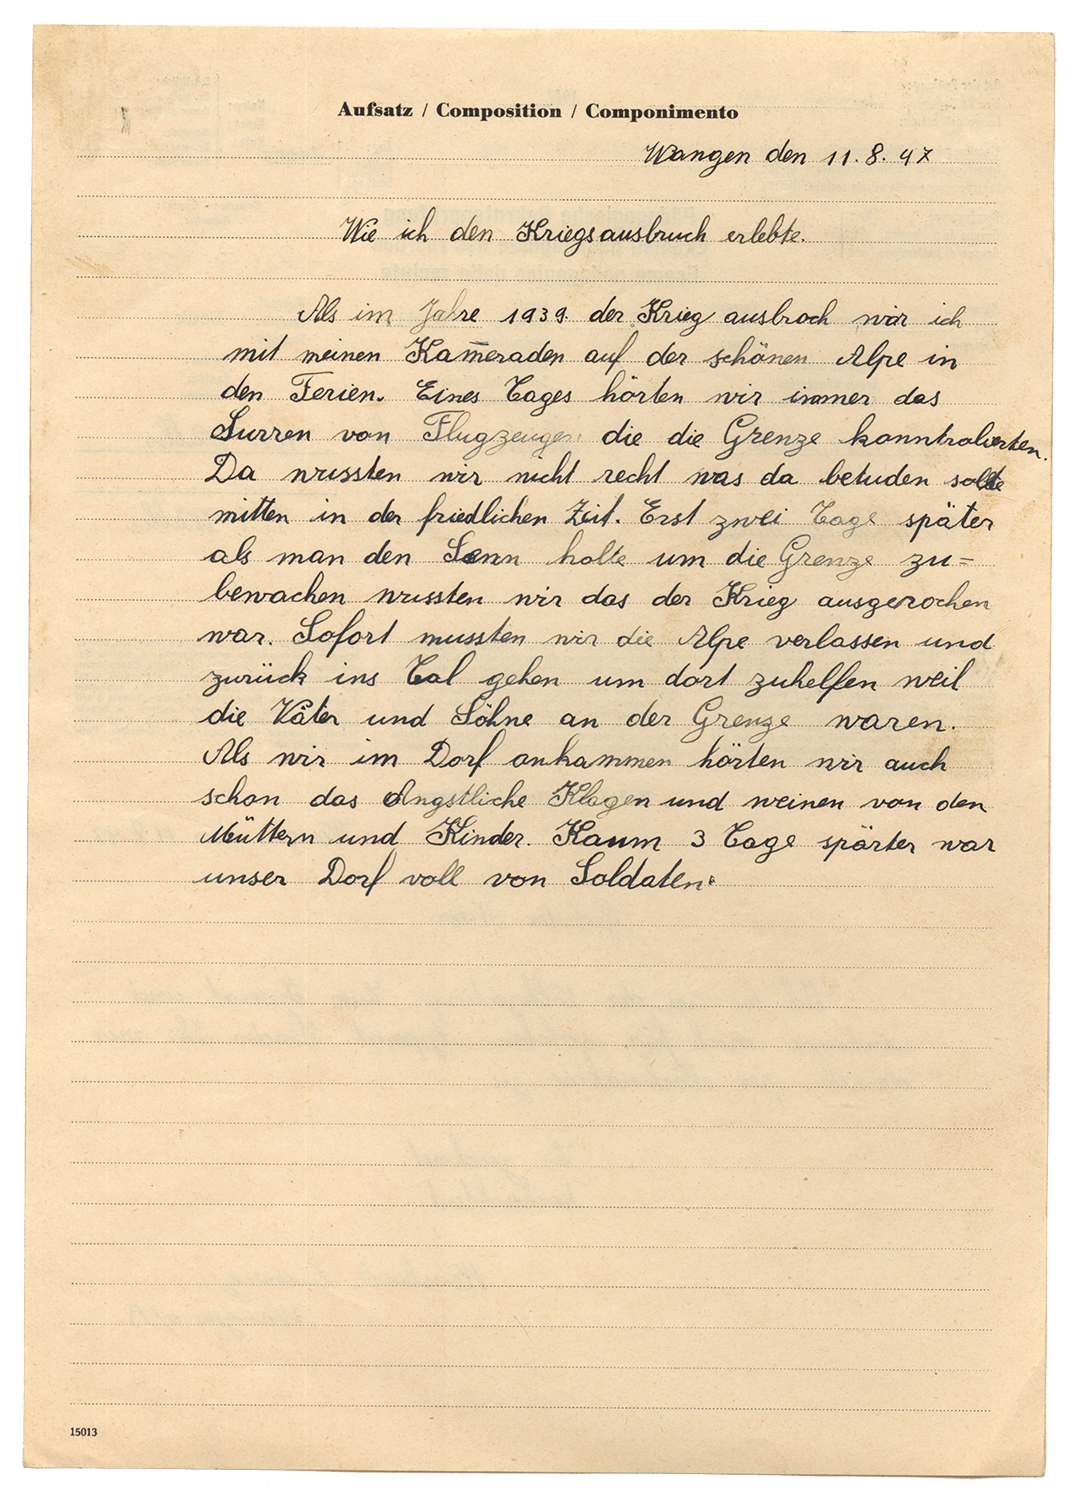 Aufsatz / Composition / Componimento
Wangen den 11. 8. 47
Wie ich den Kriegsausbruch erlebte.
Als im Jahre 1939 der Krieg ausbroch war ich
mit meinen Kam̅eraden auf der schönen Alpe in
den Ferien. Eines Tages hörten wir immer das
Surren von Flugzeugen die die Grenze konntrolierten.
Da wussten wir nicht recht was da betuden sollte
mitten in der friedlichen Zeit. Erst zwei Tage später
als man den Senn holte um die Grenze zu=
bewachen wussten wir das der Krieg ausgerochen
war. Sofort mussten wir die Alpe verlassen und
zurück ins Tal gehen um dort zuhelfen weil
die Väter und Söhne an der Grenze waren.
Als wir im Dorf ankammen hörten wir auch
schon das Angstliche Klagen und weinen von den
Müttern und Kinder. Kaum 3 Tage spärter war
unser Dorf voll von Soldaten.
15013